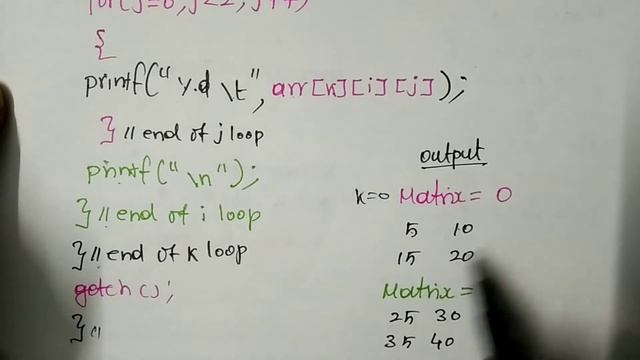 for(j=0;j<2;j++)
{
printf("%d \t", arr[k][i][j]);
} // end of j loop
printf("\n");
} // end of i loop
} // end of k loop
getch();
} //
output
k=0 Matrix = 0
5 10
15 20
Matrix =
25 30
35 40